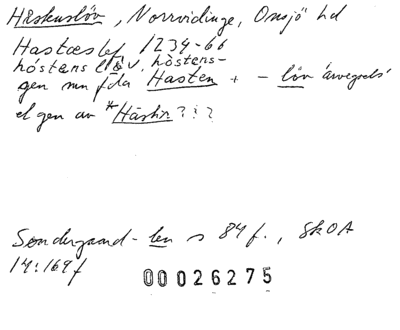 Häskuslöv, Norrvidinge, Onsjö hd
Hastæslef 1234-66
hóstens lǫ̈v, höstens-
gen mn fda Hasten + -löv 'arvegods'
el gen av *Hästir???
Søndergaard -lev s 84 f., SkOA
14:169 f
00026275